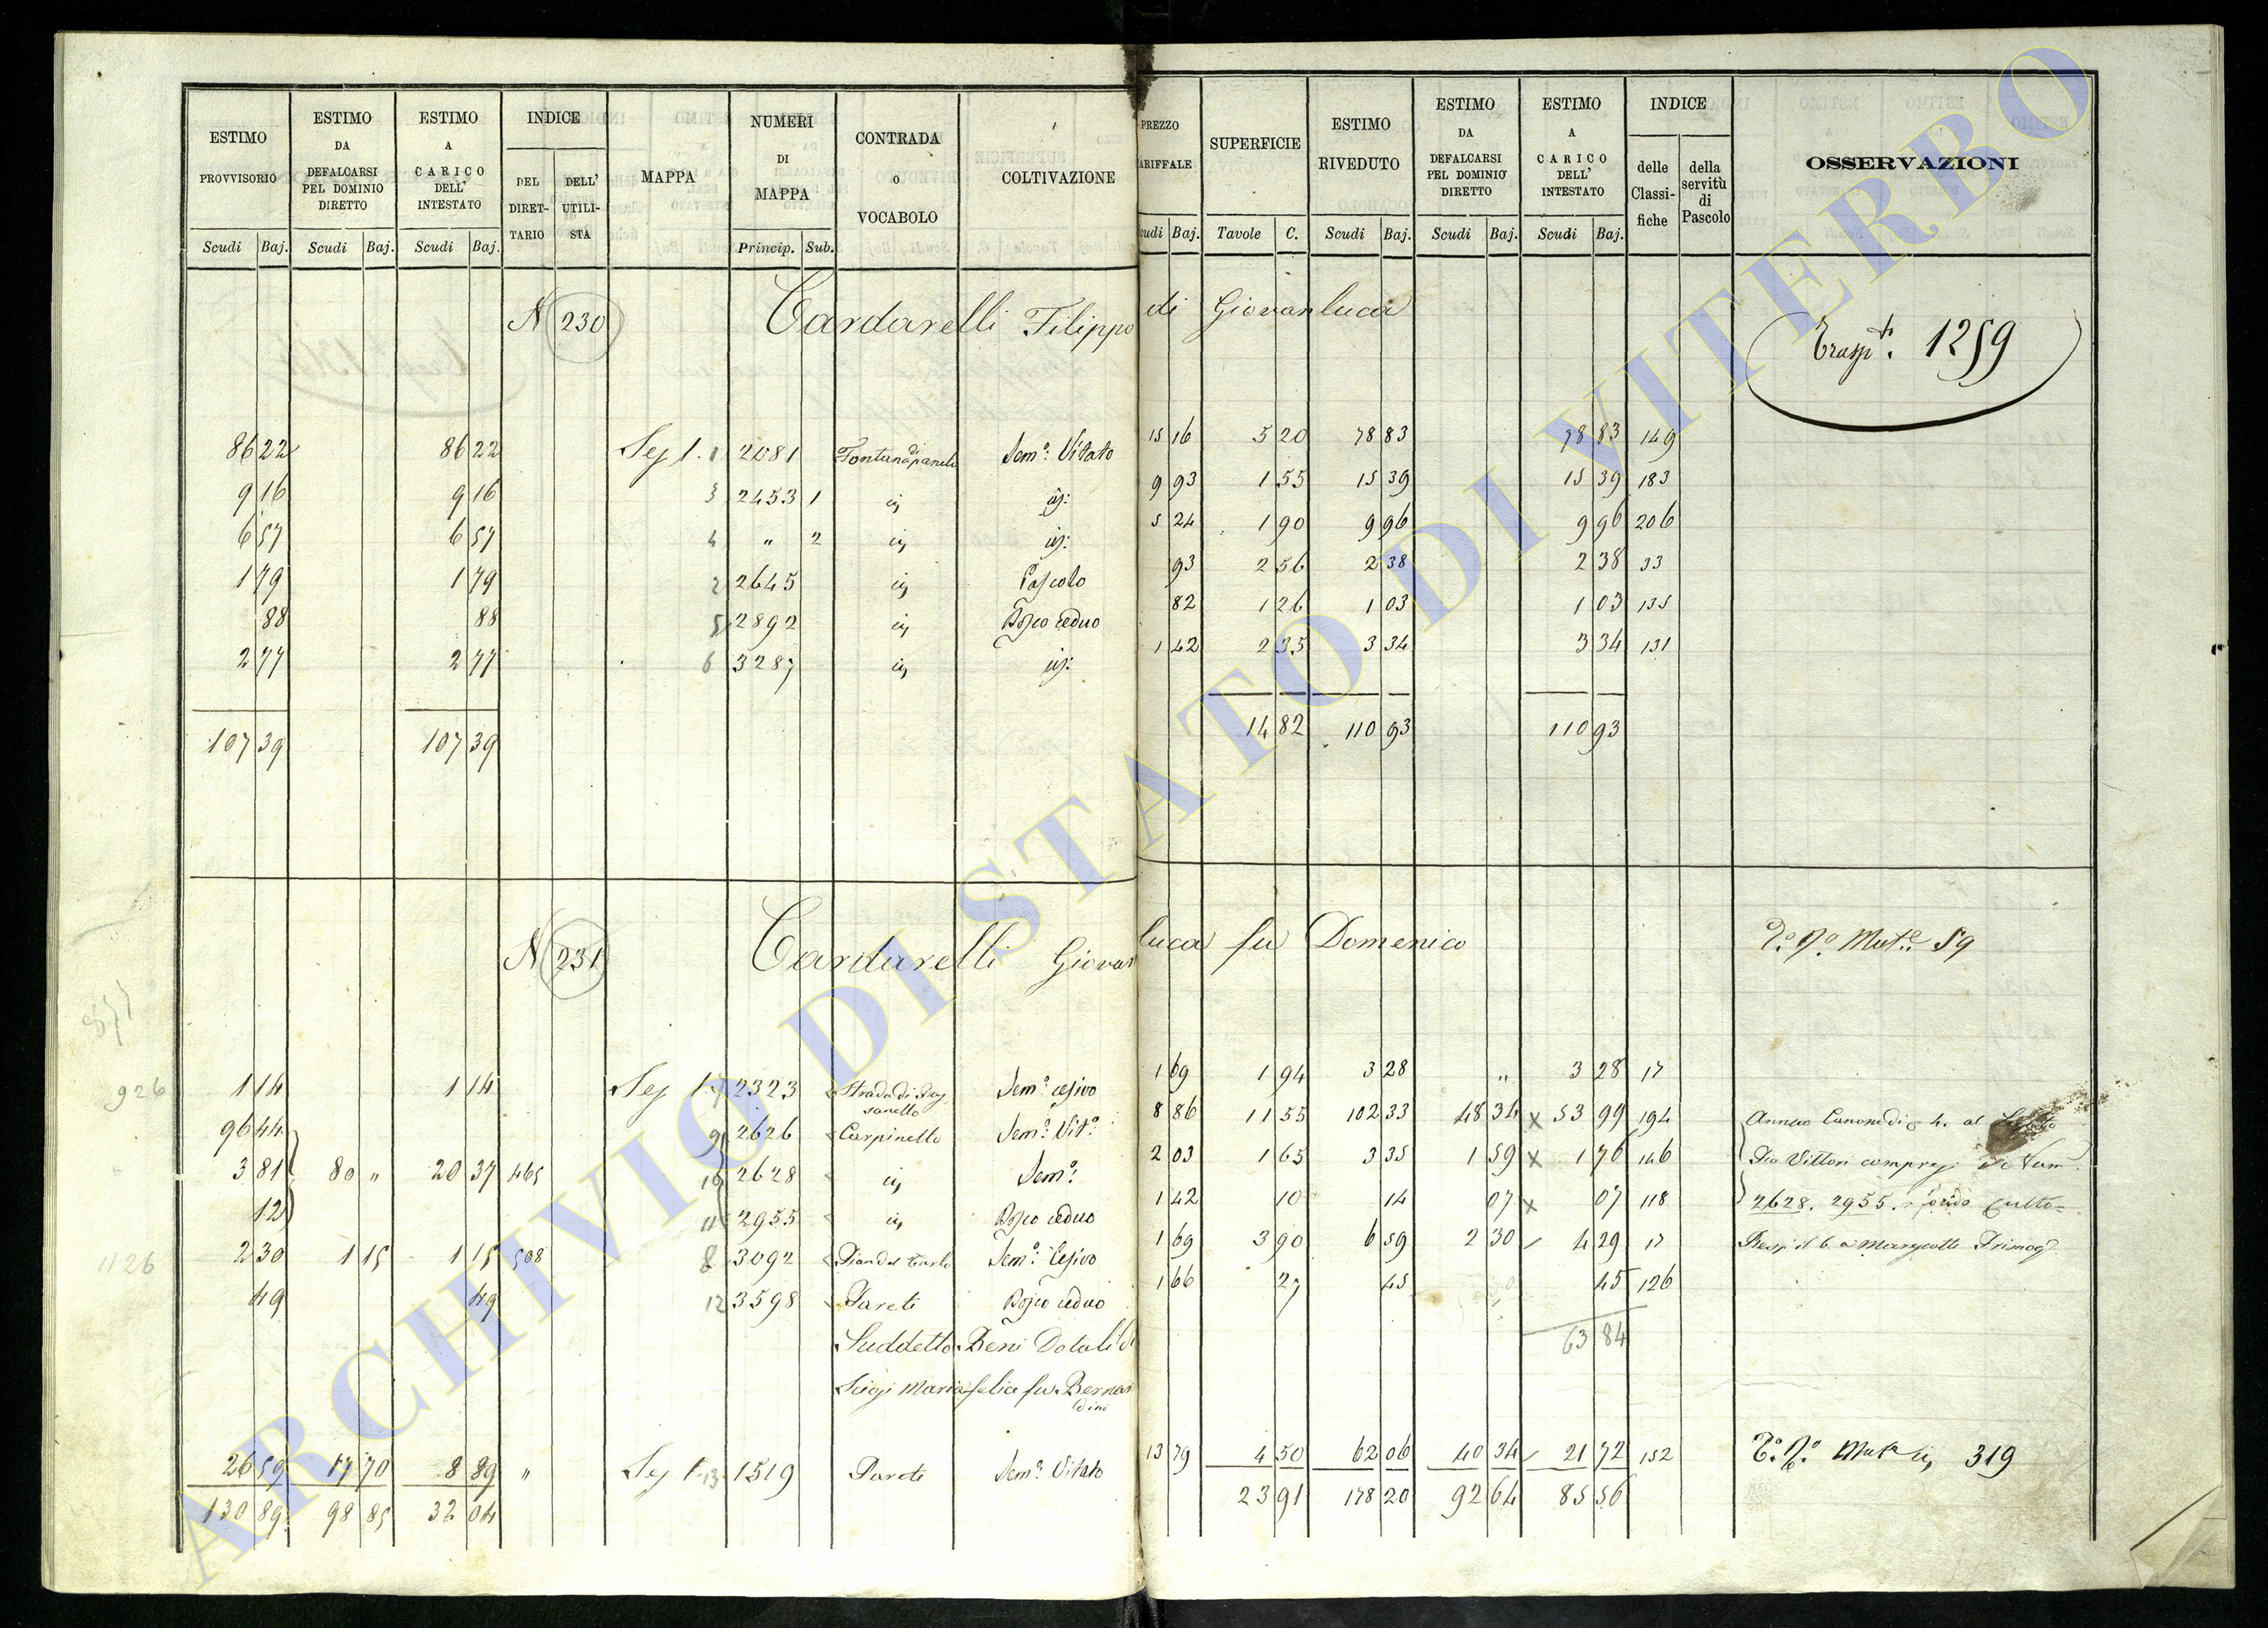 ESTIMO PROVVISORIO Scudi Baj.
ESTIMO DA DEFALCARSI PEL DOMINIO DIRETTO Scudi Baj.
ESTIMO A CARICO DELL' INTESTATO Scudi Baj.
INDICE DEL DIRETTARIO DELL' UTILISTA
MAPPA
NUMERI DI MAPPA Princip. Sub.
CONTRADA O VOCABOLO
COLTIVAZIONE
PREZZO ARIFFALE cudi Baj.
SUPERFICIE Tavole C.
ESTIMO RIVEDUTO Scudi Baj.
ESTIMO DA DEFALCARSI PEL DOMINIO DIRETTO Scudi Baj.
ESTIMO A CARICO DELL' INTESTATO Scudi Baj.
INDICE delle Classifiche della servitù di Pascolo
OSSERVAZIONI
N 230 Cardarelli Filippo di Giovanluca 1259
86 22 86 22 Sez 1. 1 2081 Fontana di Sem.º Vitato 15 16 5 20 78 83 78 83 149
9 16 9 16 3 2453 1 9 93 1 55 15 39 15 39 183
6 57 6 57 4 " 2 5 24 1 90 9 96 9 96 206
1 79 1 79 2 2645 Pascolo 93 2 56 2 38 2 38 33
88 88 5 2892 Bosco ceduo 82 1 26 1 03 1 03 135
2 77 2 77 6 3287 1 42 2 35 3 34 3 34 131
107 39 107 39 14 82 110 93 110 93
N 231 Cardarelli Giovanluca fu Domenico 59
926 1 14 1 14 Sez 1. 7 2323 Strada di Sem.º cesivo 1 69 1 94 3 28 " 3 28 17
96 44 9 2626 Carpinello Sem.º Vit.º 8 86 11 55 102 33 48 34 x 53 99 194 Annuo Canone di 4. al
3 81 80 " 20 37 465 10 2628 Sem.º 2 03 1 65 3 35 1 59 x 1 76 146 Pio Vittori compresi
12 11 2955 Bosco ceduo 1 42 10 14 07 x 07 118 2628. 2955.
1126 2 30 1 15 1 15 508 8 3092 Sem.º Cesivo 1 69 3 90 6 59 2 30 4 29 17
49 49 12 3598 Pareti Bosco ceduo 1 66 27 45 45 126
Suddetto Beni Dotali di 63 84
Maria felice fu Bernardino
26 59 17 70 8 89 " Sez 1. 13 1519 Pareti Sem.º Vitato 13 79 4 50 62 06 40 34 21 72 152 319
130 89 98 85 32 04 23 91 178 20 92 64 85 56
ARCHIVIO DI STATO DI VITERBO